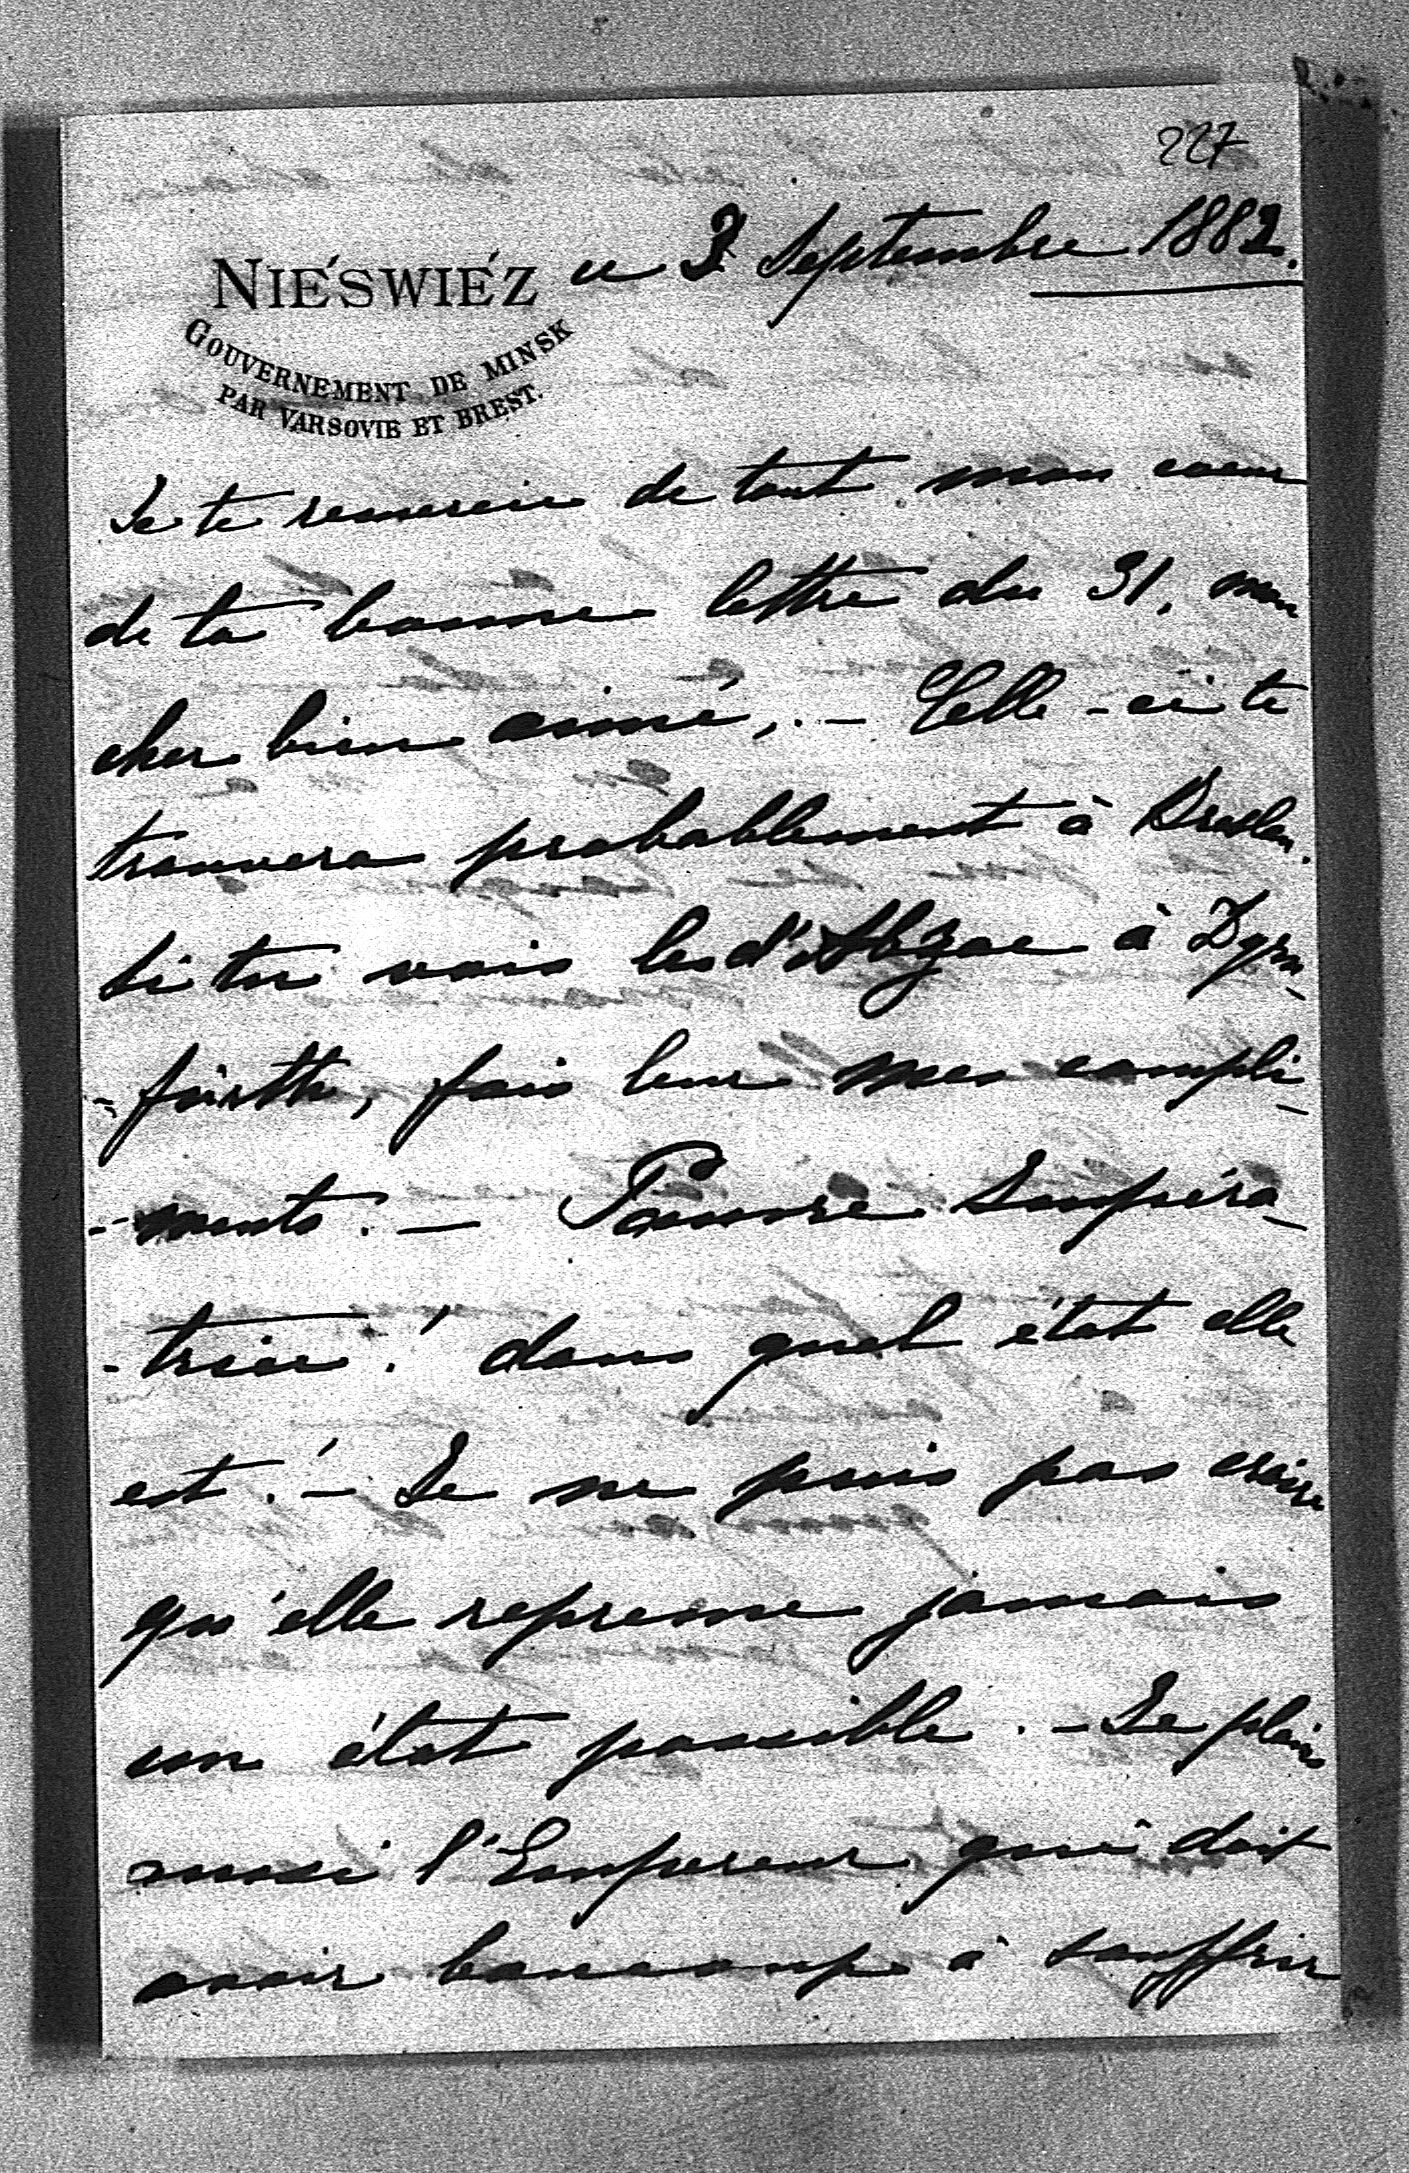 227
NIEŚWIEŻ ce 3 Septembre 1882.
GOUVERNEMENT DE MINSK
PAR VARSOVIE ET BREST.
Je te remercie de tout mon coeur
de ta bonne lettre du 31, mon
cher bien aimé, . – Celle-ci te
trouvera probablement à Breslau.
Si tu vois les d'Abzac à Dyrn-
-fürth, fais leur mes compli-
-ments. – Pauvre Impéra-
-trice! dans quel état elle
est! – Je ne puis pas croire
qu'elle reprenne jamais
un état passible. – Je plains
aussi l'Empereur qui doit
avoir beaucoup à souffrir